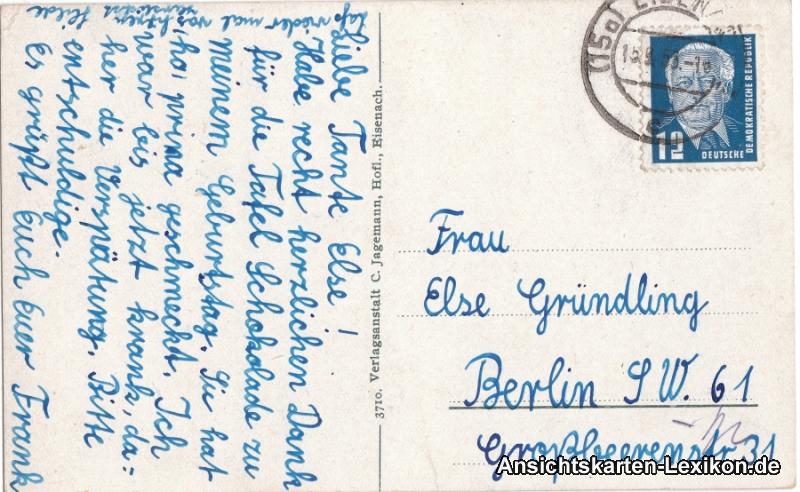 Liebe Tante Else!
Habe recht herzlichen Dank
für die Tafel Schokolade zu
meinem Geburtstag. Sie hat
ja prima geschmeckt. Ich
war bis jetzt krank, da-
her die Verspätung. Bitte
entschuldige.
Es grüßt Euch Euer Frank
wieder mal von Ihnen
Hilde
3710. Verlagsanstalt C. Jagemann, Hofl., Eisenach.
(15a) EISEN
DEUTSCHE
DEMOKRATISCHE REPUBLIK
12
Frau
Else Gründling
Berlin S.W. 61
Großbeerenstr 31
Ansichtskarten-Lexikon.de